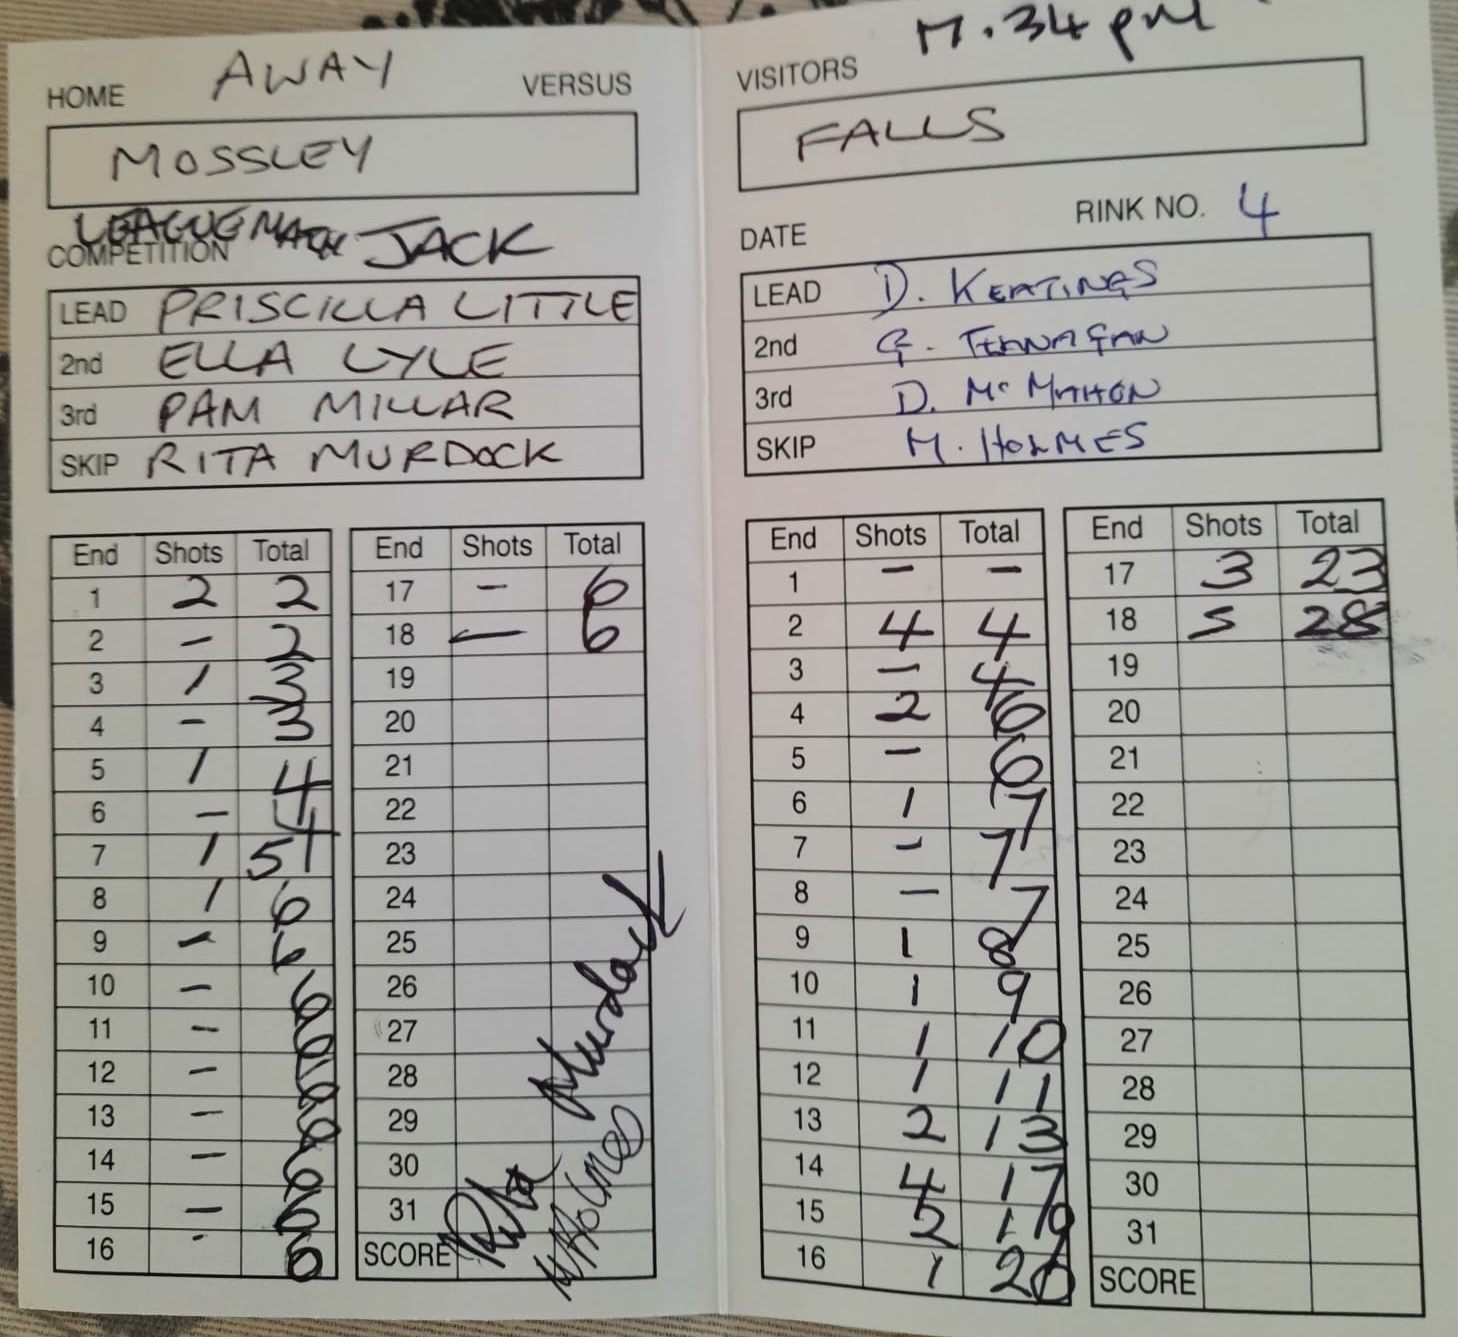 HOME AWAY VERSUS
MOSSLEY
LEAGUE MATCH JACK
COMPETITION
LEAD PRISCILLA LITTLE
2nd ELLA LYLE
3rd PAM MILLAR
SKIP RITA MURDOCK
End Shots Total
1 2 2
2 - 2
3 1 3
4 - 3
5 1 4
6 - 4
7 1 5
8 1 6
9 - 6
10 - 6
11 - 6
12 - 6
13 - 6
14 - 6
15 - 6
16 - 6
End Shots Total
17 - 6
18 - 6
19
20
21
22
23
24
25
26
27
28
29
30
31
SCORE
Rita Murdock
M Holmes
VISITORS
FALLS
DATE RINK NO. 4
LEAD D. KEATINGS
2nd
3rd D. McMAHON
SKIP M. HOLMES
End Shots Total
1 - -
2 4 4
3 - 4
4 2 6
5 - 6
6 1 7
7 - 7
8 - 7
9 1 8
10 1 9
11 1 10
12 1 11
13 2 13
14 4 17
15 2 19
16 1 20
End Shots Total
17 3 23
18 5 28
19
20
21
22
23
24
25
26
27
28
29
30
31
SCORE